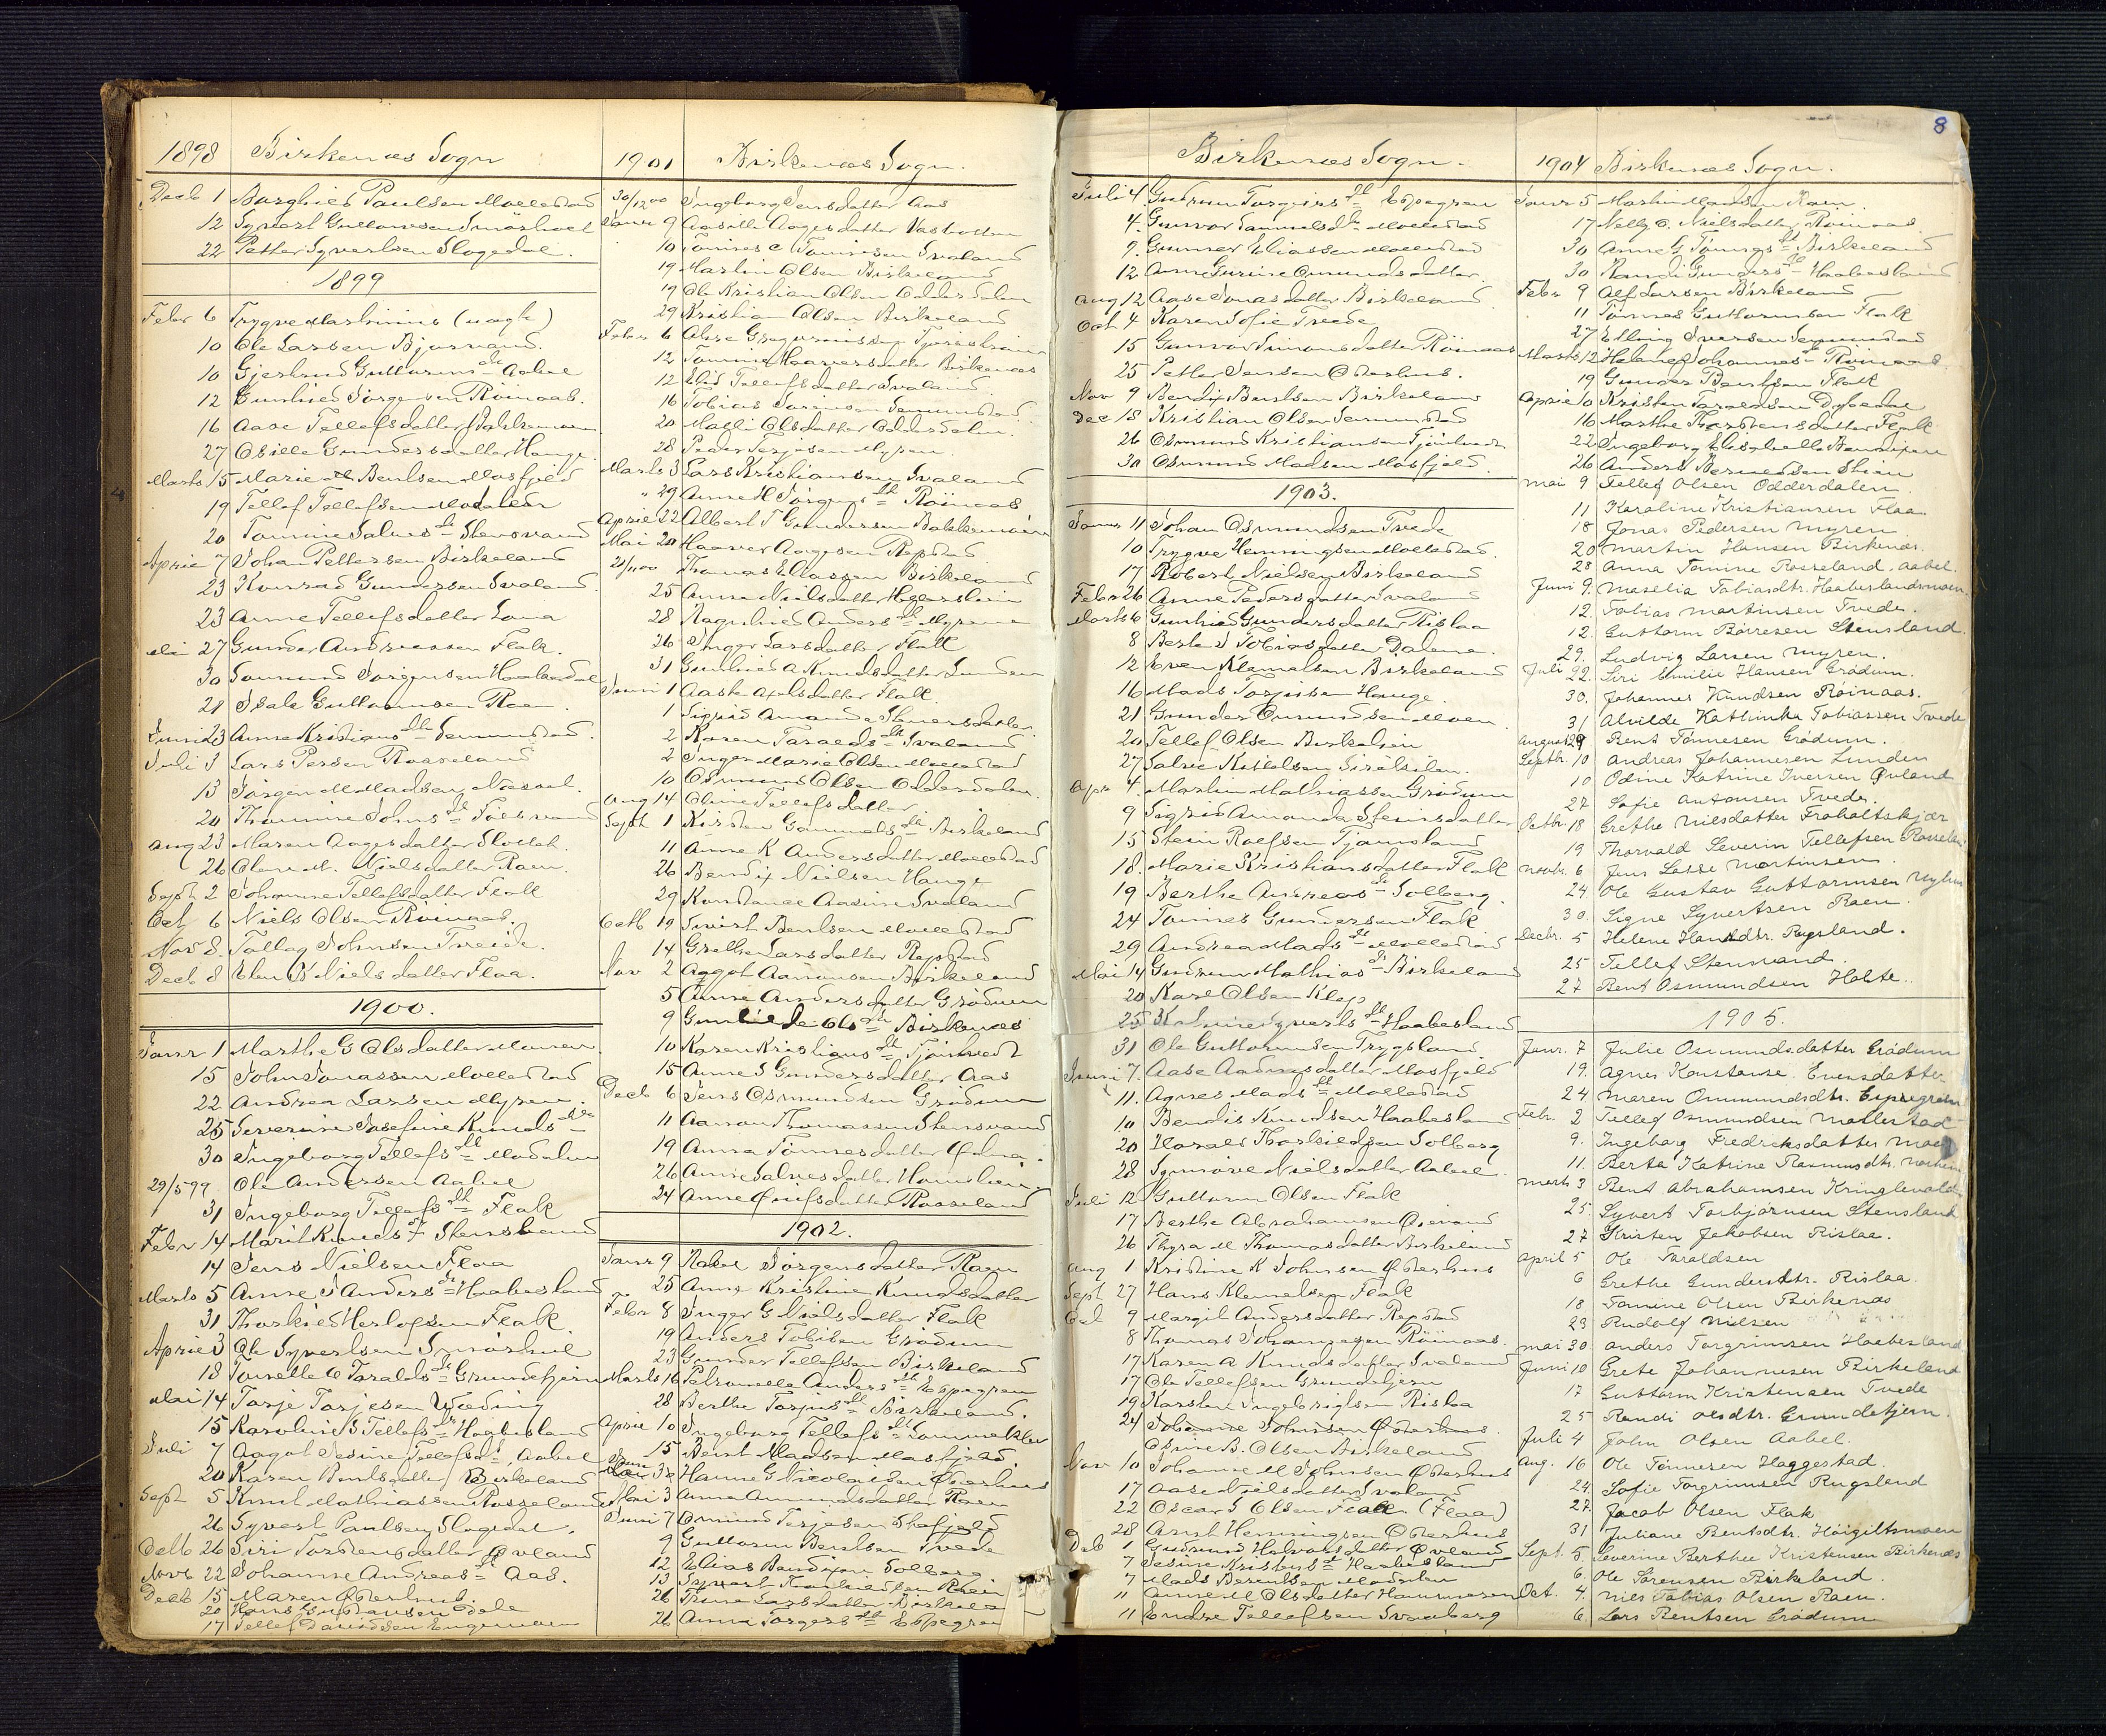 1898 Birkenæs Sogn
Decb 1 Borghild Paulsen Mollestad
12 Syvert Guttormsen
22 Petter Syvertsen Slogedal.
1899
Febr 6 Trygve Martinius (uægte)
10 Ole Larsen Bjorvand.
10 Gjertrud Guttorms dtr Aabel
12 Gunhild Jörgensen Röinaas.
16 Aase Tellefsdatter Bakkemoen
27 Osille Gundersdatter Hauge.
Marts 15 Marie Bentsen Mosfjeld
19 Tellef Tellefsen Modalen
20 Tomine Salves dtr Stensvand
April 7 Johan Pettersen Birkeland
23 Konrad Gundersen Svaland
23 Anne Tellefsdatter
Mai 27 Gunder Andreassen Flak.
30 Jörgensen
21 Isak Guttormsen Raen.
Juni 23 Anne Kristians dtr
Juli 3 Lars Persen Rosseland
13 Jörgen M Madsen
20 Thomine Johns dtr
Aug 23 Maren Aagesdatter
26 Olene M. Nielsdatter Raen.
Septb 2 Johanne Tellefsdatter Flak
Oct 6 Niels Olsen Röinaas.
Nov 8. Tallag Johnsen Tveide.
Decb 8 Nielsdatter Flaa.
1900.
Janr 1 Marthe G Olsdatter
15 John Jonassen Mollestad
22 Andrea Larsen Myren.
25 Severine Josefine Knuds dtr
30 Ingeborg Tellefs dtr Modalen
29/5 99 Ole Andersen Aabel
31 Ingeborg Tellefs dtr Flak
Febr 14 Marit Knuds Stensland
14 Jens Nielsen Flaa
Marts 5 Anne Anders dtr Haabesland
31 Thorkild Herlofsen Flak
April 3 Ole Syvertsen
18 Taralds dtr Grundetjern
Mai 14 Tarje Tarjesen
15 Karoline Tellefs dtr Haabesland
Juli 7 Aagot Tellefsd. Aabel
20 Karen Bentsdatter Birkeland
Sept 5 Knut Mathiassen Rosseland
26 Syvert Paulsen Slogedal.
26 Siri Torstensdatter Øvland
Novb 22 Johanne Andreas dtr Aas.
Decb 15 Maren Østerhus.
20 Hans Dale
17 Tellef Davidsen Engemoen
1901 Birkenæs Sogn.
30/12 00 Ingeborg Jensdatter Aas
Janr 9 Aasille Aagesdatter
10 Tomines C Tomisen Svaland
19 Martin Olsen Birkeland
19 Ole Kristian Olsen Odderdalen
29 Kristian Olsen Birkeland
Febr 6
12 Tomine Haaversdatter Birkenæs
12 Tellefsdatter Svaland
16 Tobias Jörgensen
20 Malli Olsdatter Odderdalen.
28 Peder Terjesen Myren
Marts 3 Lars Kristiansen Svaland
" 29 Anne M Jörgens dtr Röinaas
April 22 Albert T Gundersen Bakkemoen
Mai 20 Haaver Aagesen Repstad
21/11 00 Thomas Eliassen Birkeland
25 Anne Nielsdatter
28 Ragnhild Anders dtr Myrene
26 Inger Larsdatter Flak
31 Gunhild A Knudsdatter Lunden
Juni 1 Aaste Axelsdatter Flak
1 Sigrid Amanda Steinersdatter
2 Karen Taralds dtr Svaland
2 Inger Marie Olsen Mollestad
10 Osmund Olsen Odderdalen.
Aug 14 Oline Tellefsdatter
Septb 1 Kirsten Gammels dtr Birkeland
11 Anne K Andersdatter Mollestad
26 Bendix Nielsen Hauge
29 Konstance Aasine Svaland
Octb 10 Sivert Bentsen Mollestad
14 Grethe Larsdatter Repstad
Nov 2 Aagot Aanonsen Birkeland
5 Anne Andersdatter Grödum
9 Ols dtr Birkenæs
10 Karen Kristians dtr Tjönhvedt
15 Anne S Gundersdatter Aas
Decb 6 Jens Osmundsen Grödum
11 Aanon Thomassen Stensvand
19 Anna Tönnesdatter
26 Anne Salvesdatter
24 Anne Rosseland
1902.
Janr 9 Rakel Jörgensdatter Raen
25 Anne Kristine Knudsdatter
Febr 8 Inger G Nielsdatter Flak
19 Anders Tobisen Grödum
23 Gunder Tellefsen Birkeland
Marts 16 Petronelle Anders dtr Espegren
28 Berthe Torjus dtr Birkeland.
April 10 Ingeborg Tellefs dtr
15 Bent Madsen Mosfjeld
30 Hanne G Nicolaisen Østerhus
Mai 3 Anne Amundsdatter Raen
Juni 7 Omund Terjesen
9 Guttorm Bentsen Tvede
12 Elias Bendixen Solberg
13 Syvert Raen
26 Trine Larsdatter Birkeland
26 Anna Jorgens dtr Espegren
8
Birkenæs Sogn.
Juli 4. Gudrun Torgeirs dtr Espegren
4. Gunvor Sammelsdtr Mollestad
9. Gunner Eliassen Mollestad
12. Anne Gurine Omundsdatter
Aug 12 Aase Jonasdatter Birkeland
Oct 4 Karen Sofie Tvede
15 Gunvor Simonsdatter Röinaas
25 Petter Jensen Østerhus.
Nov 9 Bendix Bentsen Birkeland
Dec 15 Kristian Olsen
26 Osmund Kristiansen Tjönhvedt
30 Osmund Madsen Mosfjeld.
1903.
Janr 11 Johan Osmundsen Tvede
10 Trygve Henningsen Mollestad.
17 Robert Nielsen Birkeland
Febr 26 Anne Pedersdatter Svaland
Marts 6 Gunhild Gundersdatter Rislaa
8 Berte Tobiasdatter Dalene.
12 Even Klemetsen Birkeland
16 Mads Torjusen Hauge.
21 Gunder Omundsen Moen.
20 Tellef Olsen
27 Salve Kittelsen
Apr 4. Martin Mathiassen Grödum
9 Sigrid Amanda Steinersdatter
15 Stein Roelfsen
18. Marie Kristiansdatter Flak
19 Berthe Andreas dtr Solberg
24 Tönnes Gundersen Flak
29 Andrea Mads dtr Mollestad
Mai 14 Gudrun Mathias dtr Birkeland
20 Karl Olsen Klep
25 Syverts dtr Haabesland
31 Ole Guttormsen Trygsland
Juni 7. Aase Aadnesdatter Mosfjeld
11. Agnes Mads dtr Mollestad
10 Bendit Knudsen Haabesland
20 Harald Thorkildsen Solberg
28 Synnöve Nielsdatter Aabel.
Juli 12 Guttorm Olsen Flak
17 Berthe Abrahamsen
26 Thyra M Thomasdatter Birkeland
Aug 1 Kristine K Johnsen Østerhus
Sept 27 Hans Klemetsen Flak
Oct 9 Margit Andersdatter Repstad
8 Thomas Johannesen Röinaas.
17 Karen A Knudsdatter Svaland
17 Ole Tellefsen Grundetjern
19 Karsten Ingebrigtsen Rislaa
24 Johanne Johnsen Østerhus.
Osine B. Olsen Birkeland
Nov 10 Johanne M Johnsen Østerhus
17 Aase Nielsdatter Svaland
22 Oscar S Olsen Flaa (Flaa)
28 Arnt Henningsen Østerhus
Deb 1 Gudmund Halvorsdatter Øvland
7 Jesine Kristens dtr Haabesland
7 Mads Berentsen Modalen
11 Anne M Olsdatter
11 Endre Tellefsen
1904 Birkenæs Sogn.
Janr 5 Martin Madsen Raen.
17 Nelly O. Nielsdatter Röinaas.
30 Anne G Tönnes dtr Birkeland
30 Randi Gunders dtr Haabesland
Febr 9 Alf Larsen Birkeland
11 Tönnes Guttormsen Flak
27 Elling Iversen
Marts 12 Helene Johannes dtr Röinaas.
19 Gunder Bentsen Flak
April 10 Kristen Taraldsen
16 Marthe Thorstensdatter Flak
22 Ingeborg Elisabeth Bendixen
26 Anders Berentsen
Mai 9 Tellef Olsen Odderdalen
11 Karoline Kristiansen Flaa
18 Jonas Pedersen Myren.
20 Martin Hansen Birkenæs.
28 Anna Tomine Rosseland. Aabel.
Juni 9. Maselia Tobiasdtr. Haabeslandsmoen.
12. Tobias Martinsen Tvede.
12. Guttorm Börresen Stensland
29. Ludvig Larsen Myren.
Juli 22. Siri Emilie Hansen Grödum.
30. Johannes Knudsen Röinaas.
31 Alvilde Kathinka Tobiassen Tvede
August 29 Bent Tönnesen Grödum.
Septbr. 10 Andreas Johannesen Lunden
10 Odine Katrine Iversen Øvland
27 Sofie Antonsen Tvede.
Octbr. 18 Grethe Nilsdatter Froholtskjær
19 Thorvald Severin Tellefsen Rosseland
Novbr. 6 Jens Lasse Martinsen
24. Ole Gustav Guttormsen Myhren
30. Signe Syvertsen Raen.
Decbr. 5 Helene Hansdtr. Rugsland.
25 Tellef Stensvand.
27 Bent Osmundsen Holte.
1905.
Janr. 7 Julie Osmundsdatter Grödum
19. Agnes Konstanse Evensdatter
24 Maren Ommundsdtr. Espegren
Febr. 2 Tellef Osmundsen Mollestad
9. Ingeborg Fredriksdatter Moe
11. Berta Katrine Rasmusdtr.
Marts 3 Bent Abrahamsen Kringlevold
25. Syvert Torbjörnsen Stensland
27 Kristen Jakobsen Rislaa.
April 5 Ole Taraldsen
6 Grethe Gundersdtr. Rislaa.
18 Tomine Olsen Birkenæs
23 Rudolf Nilsen
Mai 30. Anders Torgrimsen Haabesland
Juni 10 Grete Johannesen Birkeland
17 Guttorm Kristensen Tvede
25 Randi Olsdtr. Grundetjern.
Juli 4 John Olsen Aabel.
Aug. 16 Ole Tönnesen Haggestad.
24. Sofie Torgrimsen Rugsland
27. Jacob Olsen Flak
31 Juliane Bentsdtr. Höigiltsmoen
Sept. 5. Severine Berthee Kristensen Birkenæs
6. Ole Sörensen Birkeland.
Oct. 4. Nils Tobias Olsen Raen.
6. Lars Bentsen Grödum